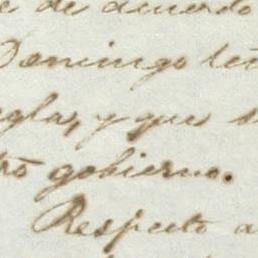 e de acuerdo
Domingo
egla, y que s
tro gobierno.
Respecto a